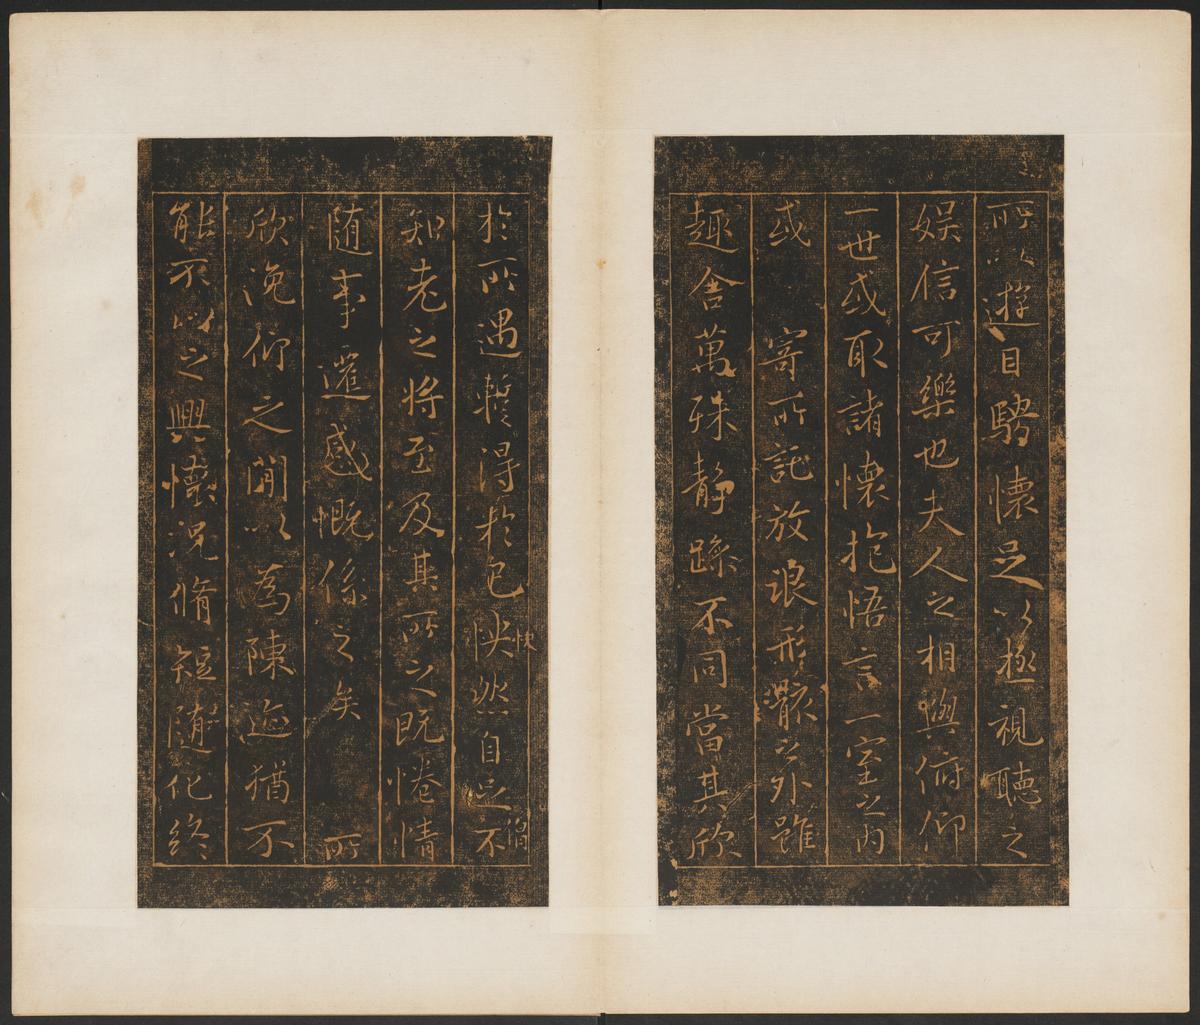 所以遊目騁懷足以極視聽之
娛信可樂也夫人之相與俯仰
一世或取諸懷抱悟言一室之內
或寄所託放浪形骸之外雖
趣舍萬殊靜躁不同當其欣
快
僧
於所遇暫得於己怏然自足不
知老之將至及其所之既惓情
隨事遷感慨係之矣 所
欣俛仰之閒以為陳迹猶不
能不以之興懷況脩短隨化終